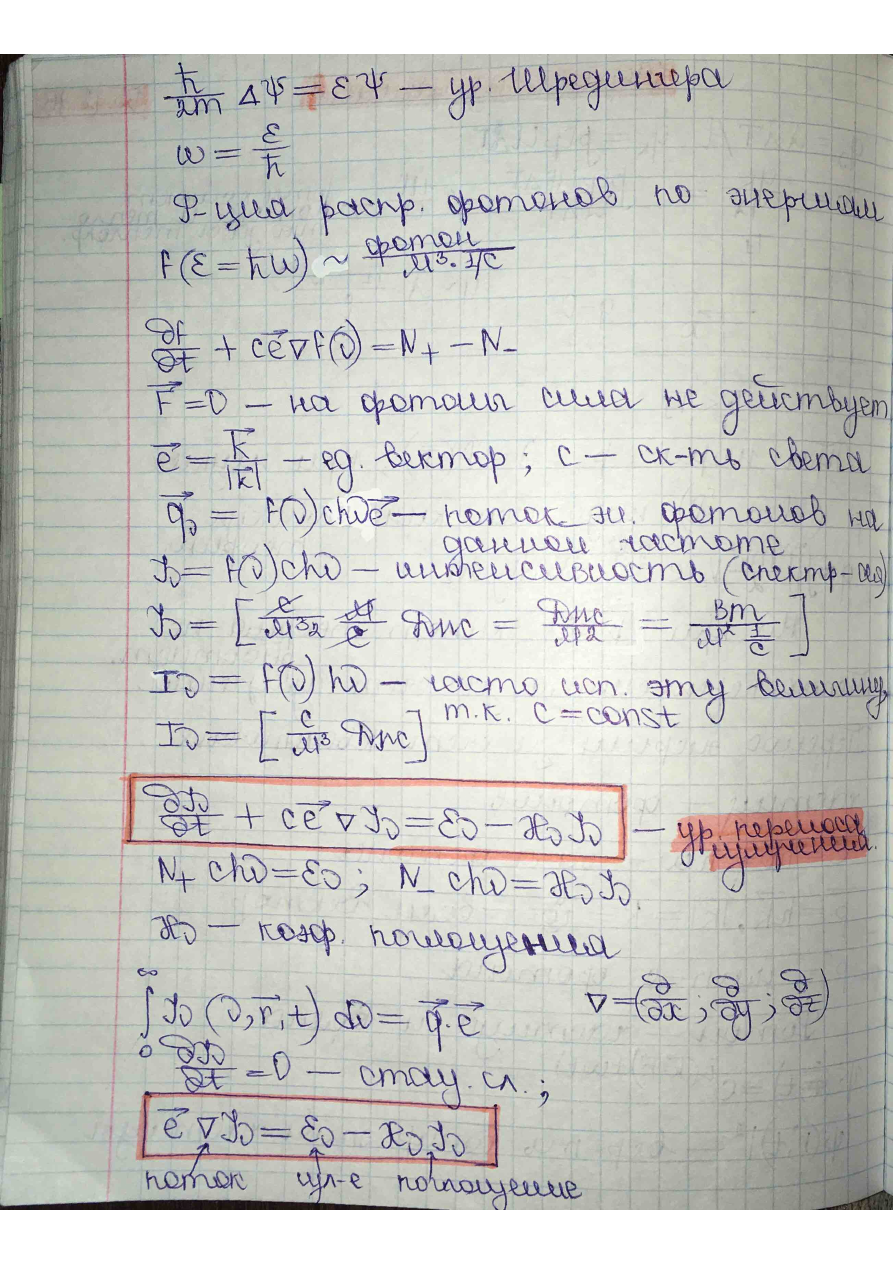 ħ/2m ΔΨ = εΨ — ур. Шредингера
ω = ε/ħ
Ф-ция распр. фотонов по энергиям
f(ε = ħω) ~ фотон/м³·1/с
∂f/∂t + c e⃗ ∇ f(ν) = N₊ − N₋
F⃗ = 0 — на фотоны сила не действует
e⃗ = k⃗/|k⃗| — ед. вектор ; c — ск-ть света
q⃗ν = f(ν) chν e⃗ — поток эн. фотонов на
данной частоте
Jν = f(ν) chν — интенсивность (спектр-ая)
Jν = [ с/м³² м/с Джс = Джс/м² = Вт/м² 1/с ]
Iν = f(ν) hν — часто исп. эту величину,
т.к. c = const
Iν = [ с/м³ Джс ]
∂Jν/∂t + c e⃗ ∇ Jν = εν − ϰν Jν — ур. переноса
излучения.
N₊ chν = εν ; N₋ chν = ϰν Jν.
ϰν — коэф. поглощения
∫₀^∞ Jν (ν, r⃗, t) dν = q⃗·e⃗ ∇ = (∂/∂x ; ∂/∂y ; ∂/∂z)
∂Jν/∂t = 0 — стац. сл. ;
e⃗ ∇ Jν = εν − ϰν Jν
поток изл-е поглощение